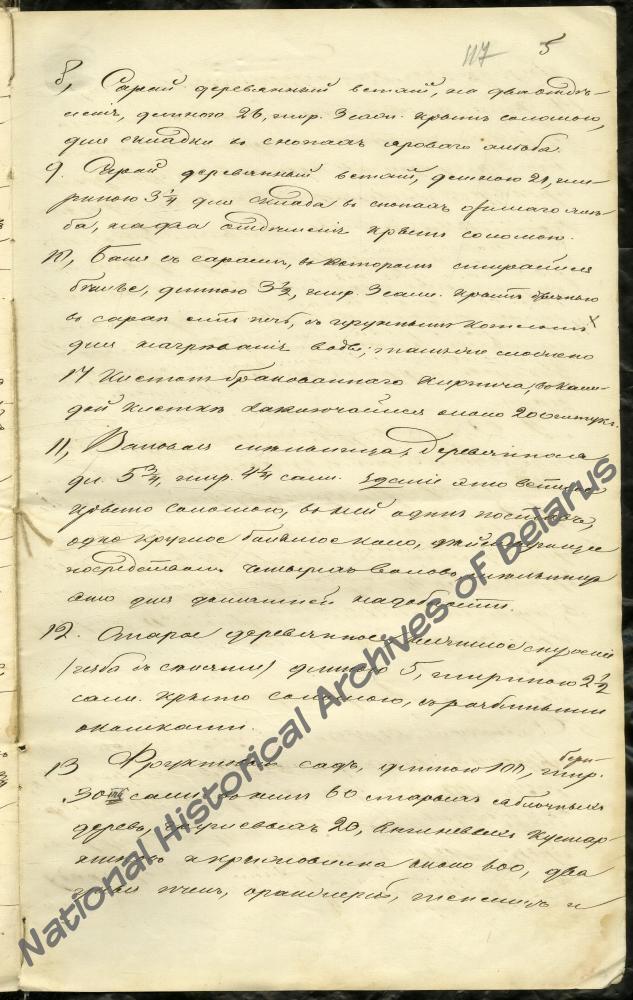 117 5
8, Сарай деревянный ветхій, на два отдѣ-
леніѧ, длиною 26, шир. 3 саж. крытъ соломою,
для складки въ снопахъ яроваго хлѣба.
9. Сарай деревянный ветхій, длиною 21, ши-
риною 3 1/4 для склада въ снопахъ озимаго хлѣ-
ба, на два отдѣленія крытъ соломою.
10, Баня съ сараемъ, въ которомъ стирается
бѣлье, длиною 3 1/2, шир. 3 саж. крыть
въ сарая есть печь, съ чугуннымъ котломъ
для нагрѣванія воды; тамъ же сложено
17 клетокъ бракованнаго кирпича, въ каж-
дой клеткѣ заключается около 200 штукъ.
11, Воловая мельница, деревянная
дл. 5 3/4, шир. 4 1/4 саж. зданіе это ветхое
крыто соломою, въ ней одинъ поставъ,
одно круглое большое коло, дѣйствующее
посредствомъ четырехъ воловъ, мельница
эта для домашней надобности.
12. Старое деревянное жилое строеніе
(изба съ сѣнями) длиною 5, шириною 2 1/2
саж. крыто соломою, съ
окошками.
13 Фруктовый садъ, длиною 100, шир.
30 саж. въ немъ 60 старыхъ яблочныхъ
деревъ, грушевыхъ 20, вишневыхъ кустар-
никовъ и крыжовника около 600, два
пчелъ, оранжерей, теплицъ и
National Historical Archives of Belarus